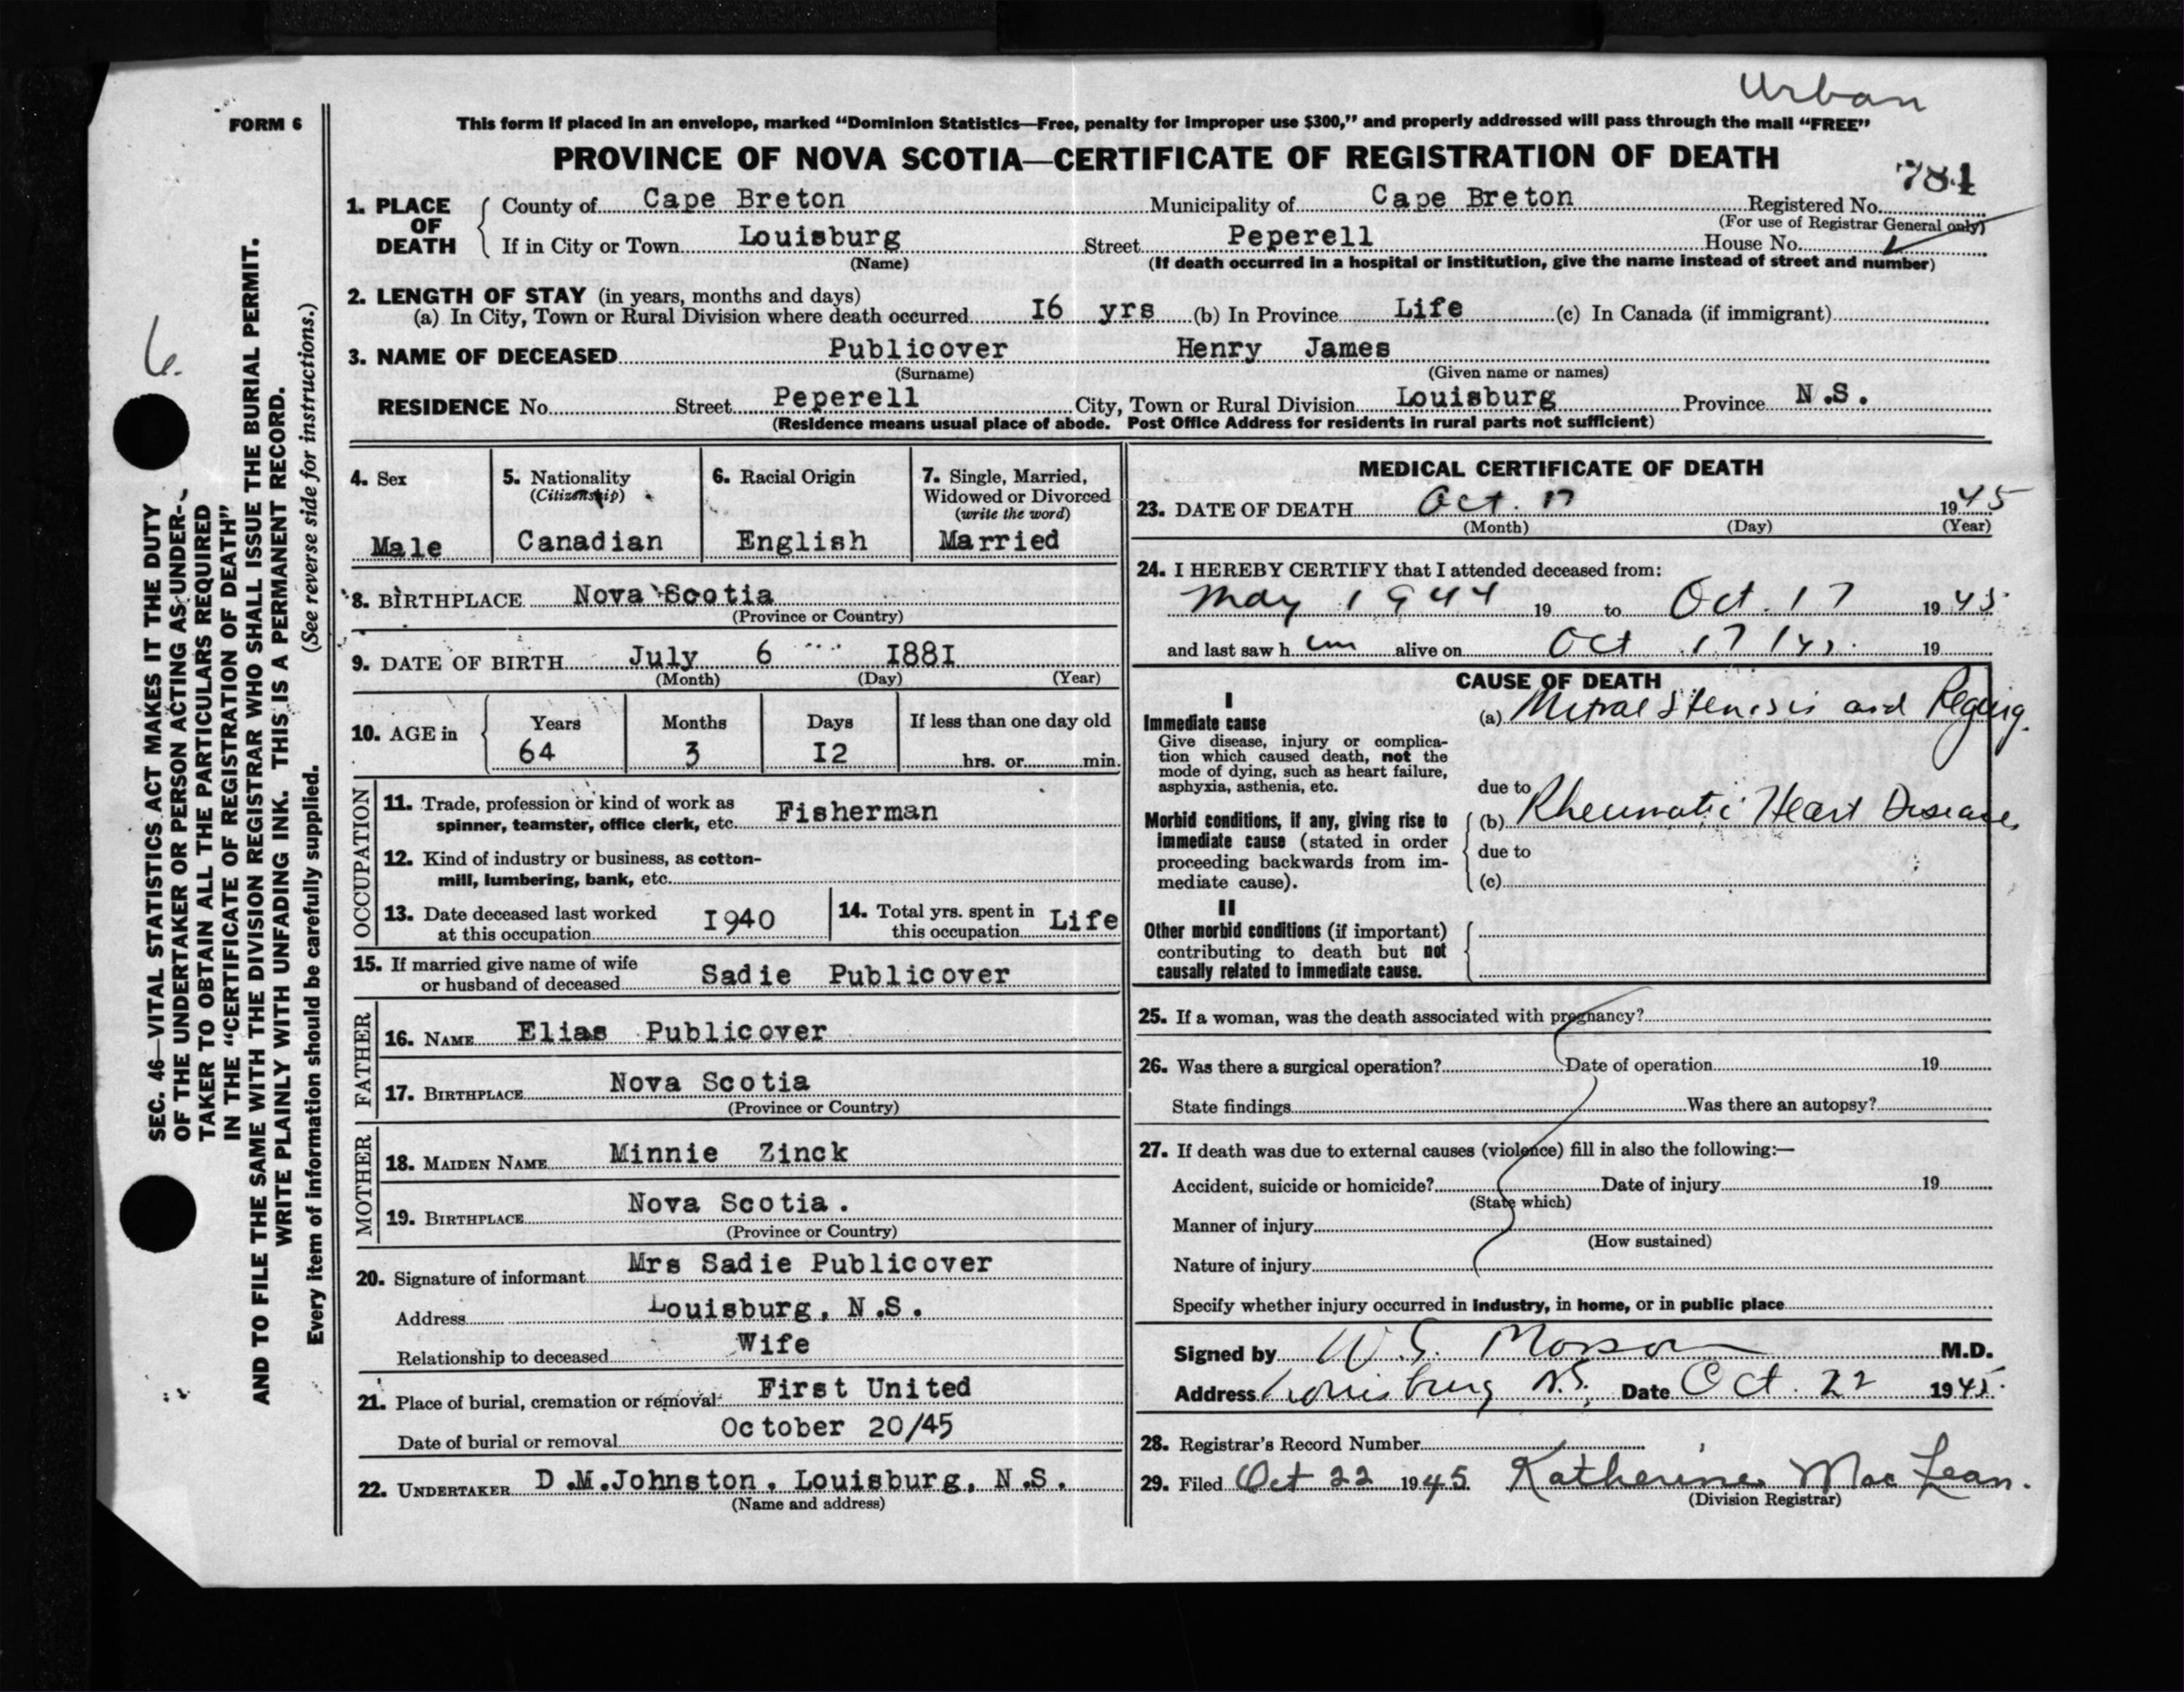 Urban
FORM 6
This form if placed in an envelope, marked “Dominion Statistics—Free, penalty for improper use $300,” and properly addressed will pass through the mail “FREE”
PROVINCE OF NOVA SCOTIA—CERTIFICATE OF REGISTRATION OF DEATH
784
1. PLACE OF DEATH
County of Cape Breton Municipality of Cape Breton Registered No.
(For use of Registrar General only)
If in City or Town Louisburg Street Peperell House No.
(Name) (If death occurred in a hospital or institution, give the name instead of street and number)
2. LENGTH OF STAY (in years, months and days)
(a) In City, Town or Rural Division where death occurred I6 yrs (b) In Province Life (c) In Canada (if immigrant)
3. NAME OF DECEASED Publicover Henry James
(Surname) (Given name or names)
RESIDENCE No. Street Peperell City, Town or Rural Division Louisburg Province N.S.
(Residence means usual place of abode. Post Office Address for residents in rural parts not sufficient)
4. Sex
Male
5. Nationality
(Citizenship)
Canadian
6. Racial Origin
English
7. Single, Married,
Widowed or Divorced
(write the word)
Married
8. BIRTHPLACE Nova Scotia
(Province or Country)
9. DATE OF BIRTH July 6 I88I
(Month) (Day) (Year)
10. AGE in
Years Months Days If less than one day old
64 3 I2 hrs. or min.
OCCUPATION
11. Trade, profession or kind of work as
spinner, teamster, office clerk, etc. Fisherman
12. Kind of industry or business, as cotton-
mill, lumbering, bank, etc.
13. Date deceased last worked
at this occupation I940
14. Total yrs. spent in
this occupation Life
15. If married give name of wife
or husband of deceased Sadie Publicover
FATHER
16. NAME Elias Publicover
17. BIRTHPLACE Nova Scotia
(Province or Country)
MOTHER
18. MAIDEN NAME Minnie Zinck
19. BIRTHPLACE Nova Scotia.
(Province or Country)
20. Signature of informant Mrs Sadie Publicover
Address Louisburg, N.S.
Relationship to deceased Wife
21. Place of burial, cremation or removal First United
Date of burial or removal October 20/45
22. UNDERTAKER D.M.Johnston. Louisburg, N.S.
(Name and address)
MEDICAL CERTIFICATE OF DEATH
23. DATE OF DEATH Oct. 17 1945
(Month) (Day) (Year)
24. I HEREBY CERTIFY that I attended deceased from:
May 1944 19 to Oct. 17 1945
and last saw h im alive on Oct 17 19
CAUSE OF DEATH
I
Immediate cause
Give disease, injury or complica-
tion which caused death, not the
mode of dying, such as heart failure,
asphyxia, asthenia, etc.
(a) Mitral Stenosis and Regurg.
due to
Morbid conditions, if any, giving rise to
immediate cause (stated in order
proceeding backwards from im-
mediate cause).
(b) Rheumatic Heart Disease
due to
(c)
II
Other morbid conditions (if important)
contributing to death but not
causally related to immediate cause.
25. If a woman, was the death associated with pregnancy?
26. Was there a surgical operation? Date of operation 19
State findings Was there an autopsy?
27. If death was due to external causes (violence) fill in also the following:—
Accident, suicide or homicide? Date of injury 19
(State which)
Manner of injury
(How sustained)
Nature of injury
Specify whether injury occurred in industry, in home, or in public place
Signed by W.S. M.D.
Address Louisburg N.S. Date Oct. 22 1945.
28. Registrar's Record Number
29. Filed Oct 22 1945. Katherine MacLean.
(Division Registrar)
6.
SEC. 46—VITAL STATISTICS ACT MAKES IT THE DUTY
OF THE UNDERTAKER OR PERSON ACTING AS UNDER-
TAKER TO OBTAIN ALL THE PARTICULARS REQUIRED
IN THE “CERTIFICATE OF REGISTRATION OF DEATH”
AND TO FILE THE SAME WITH THE DIVISION REGISTRAR WHO SHALL ISSUE THE BURIAL PERMIT.
WRITE PLAINLY WITH UNFADING INK. THIS IS A PERMANENT RECORD.
Every item of information should be carefully supplied. (See reverse side for instructions.)